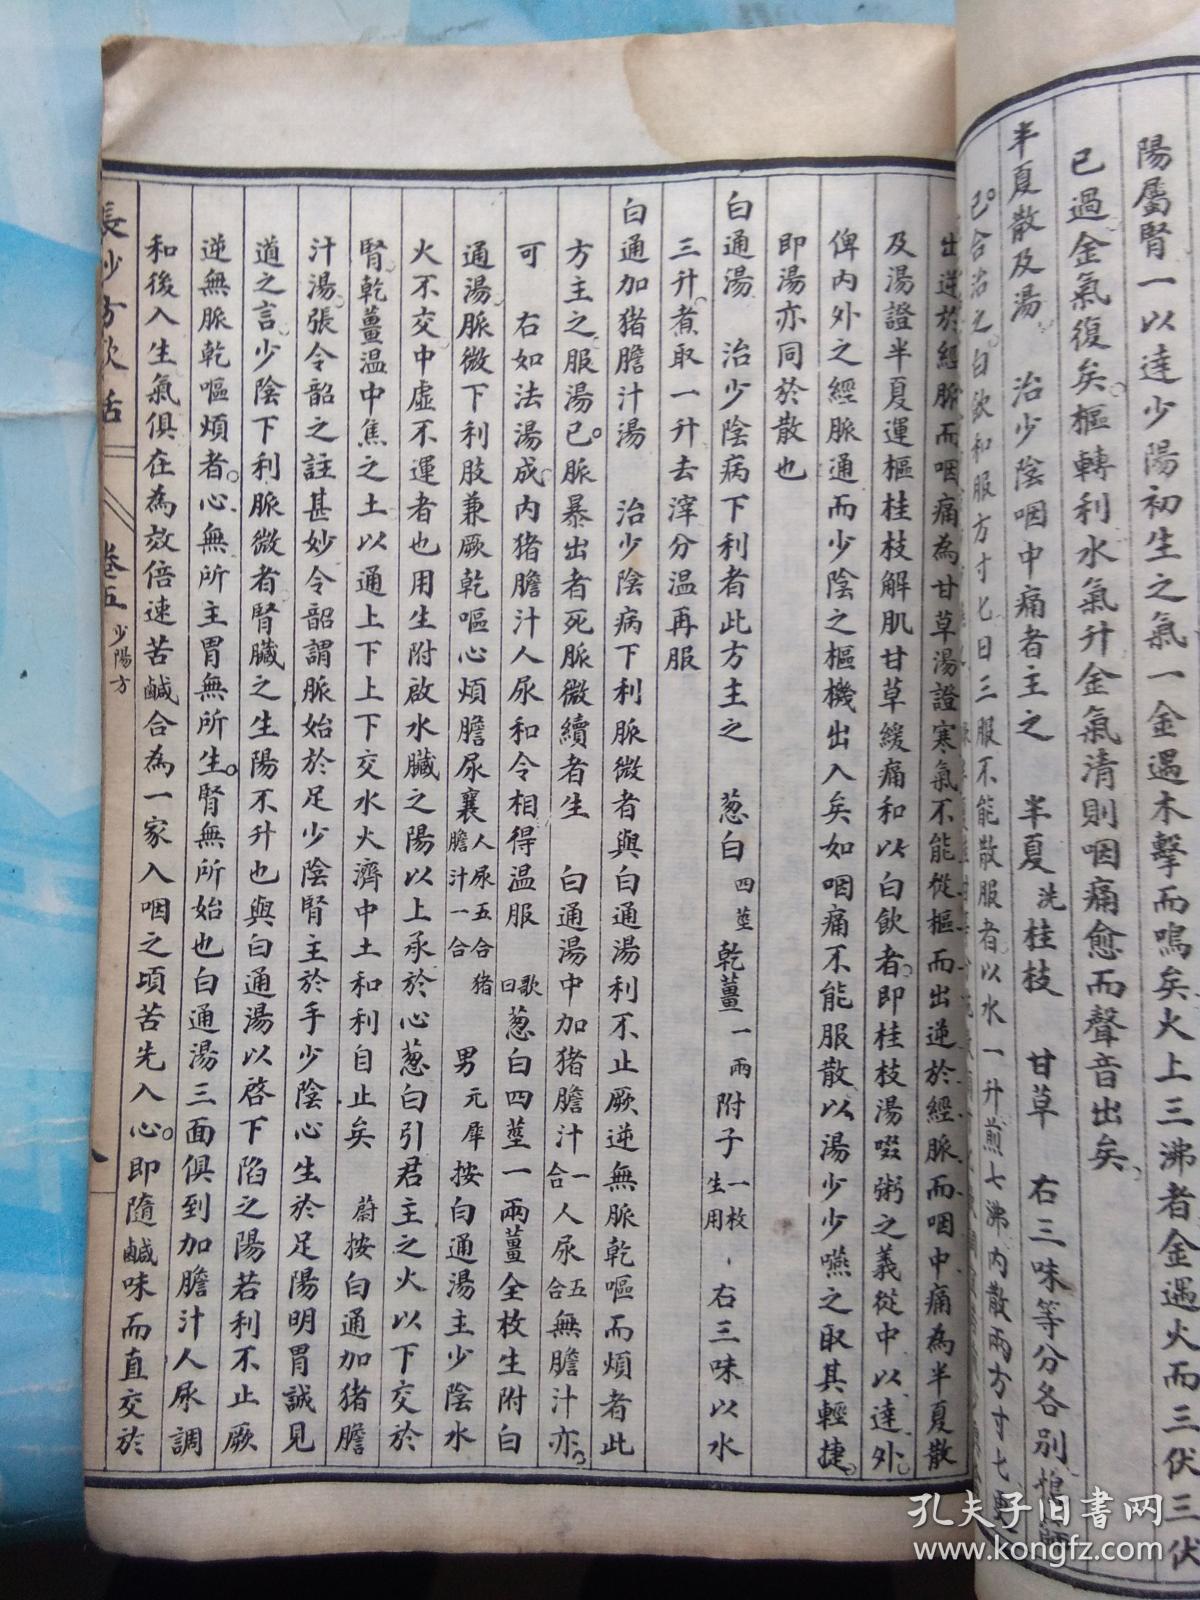 陽屬腎一以達少陽初生之氣一金遇木擊而鳴矣火上三沸者金遇火而三伏三伏
已過金氣復矣樞轉利水氣升金氣清則咽痛愈而聲音出矣
半夏散及湯 治少陰咽中痛者主之 半夏洗桂枝 甘草 右三味等分各別搗篩
已合治之白飲和服方寸匕日三服不能散服者以水一升煎七沸內散兩方寸匕更
出逆於經脈而咽痛為甘草湯證寒氣不能從樞而出逆於經脈而咽中痛為半夏散
及湯證半夏運樞桂枝解肌甘草緩痛和以白飲者即桂枝湯啜粥之義從中以達外
俾內外之經脈通而少陰之樞機出入矣如咽痛不能服散以湯少少嚥之取其輕捷
即湯亦同於散也
白通湯 治少陰病下利者此方主之 葱白四莖乾薑一兩附子一枚生用 右三味以水
三升煮取一升去滓分溫再服
白通加猪膽汁湯 治少陰病下利脈微者與白通湯利不止厥逆無脈乾嘔而煩者此
方主之服湯已脈暴出者死脈微續者生 白通湯中加猪膽汁一合人尿五合無膽汁亦
可 右如法湯成內猪膽汁人尿和令相得溫服 歌曰葱白四莖一兩薑全枚生附白
通湯脈微下利肢兼厥乾嘔心煩膽尿襄人尿五合猪膽汁一合 男元犀按白通湯主少陰水
火不交中虛不運者也用生附啟水臟之陽以上承於心葱白引君主之火以下交於
腎乾薑溫中焦之土以通上下上下交水火濟中土和利自止矣 蔚按白通加猪膽
汁湯張令韶之註甚妙令韶謂脈始於足少陰腎主於手少陰心生於足陽明胃誠見
道之言少陰下利脈微者腎臟之生陽不升也與白通湯以啓下陷之陽若利不止厥
逆無脈乾嘔煩者心無所主胃無所生腎無所始也白通湯三面俱到加膽汁人尿調
和後入生氣俱在為效倍速苦鹹合為一家入咽之頃苦先入心即隨鹹味而直交於
長沙方歌括 卷五 少陽方 八
孔夫子旧书网
www.kongfz.com